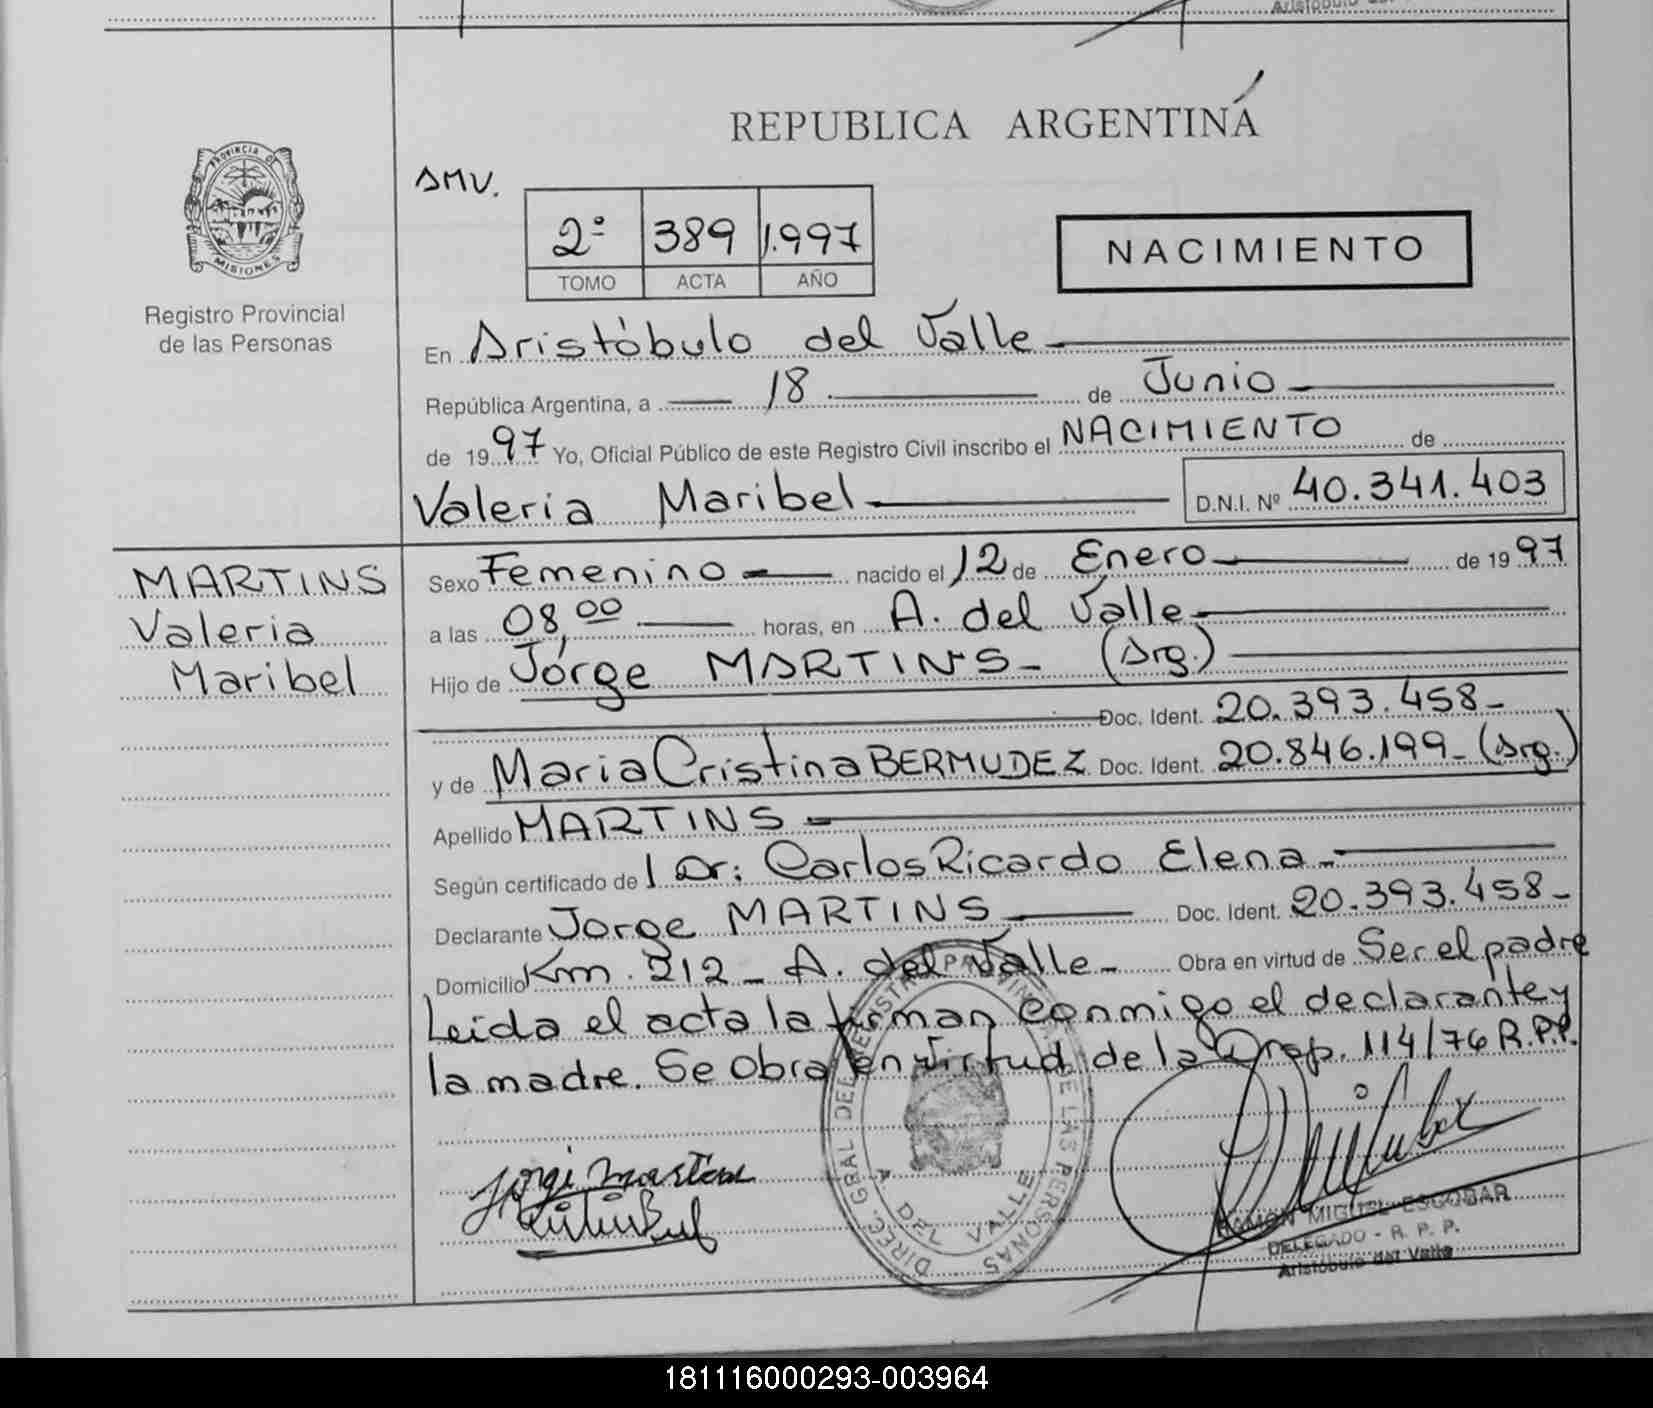 REPUBLICA ARGENTINA
PROVINCIA DE
MISIONES
Registro Provincial
de las Personas
SMV.
2º 389 1.997
TOMO ACTA AÑO
NACIMIENTO
En Aristóbulo del Valle
República Argentina, a 18 de Junio
de 1997 Yo, Oficial Público de este Registro Civil inscribo el NACIMIENTO de
Valeria Maribel D.N.I. Nº 40.341.403
MARTINS
Valeria
Maribel
Sexo Femenino nacido el 12 de Enero de 1997
a las 08,00 horas, en A. del Valle
Hijo de Jorge MARTINS- (Arg.)
Doc. Ident. 20.393.458-
y de Maria Cristina BERMUDEZ Doc. Ident. 20.846.199-(Arg.)
Apellido MARTINS
Según certificado de l Dr: Carlos Ricardo Elena-
Declarante Jorge MARTINS Doc. Ident. 20.393.458-
Domicilio Km. 212- A. del Valle- Obra en virtud de Ser el padre
Leida el acta la firman conmigo el declarante y
la madre. Se Obra en virtud de la Disp. 114/76 R.P.P.
DIREC. GRAL DEL REGISTRO PROVINCIAL DE LAS PERSONAS
A DEL VALLE
RAMON MIGUEL ESCOBAR
DELEGADO - R. P. P.
Aristóbulo del Valle
181116000293-003964